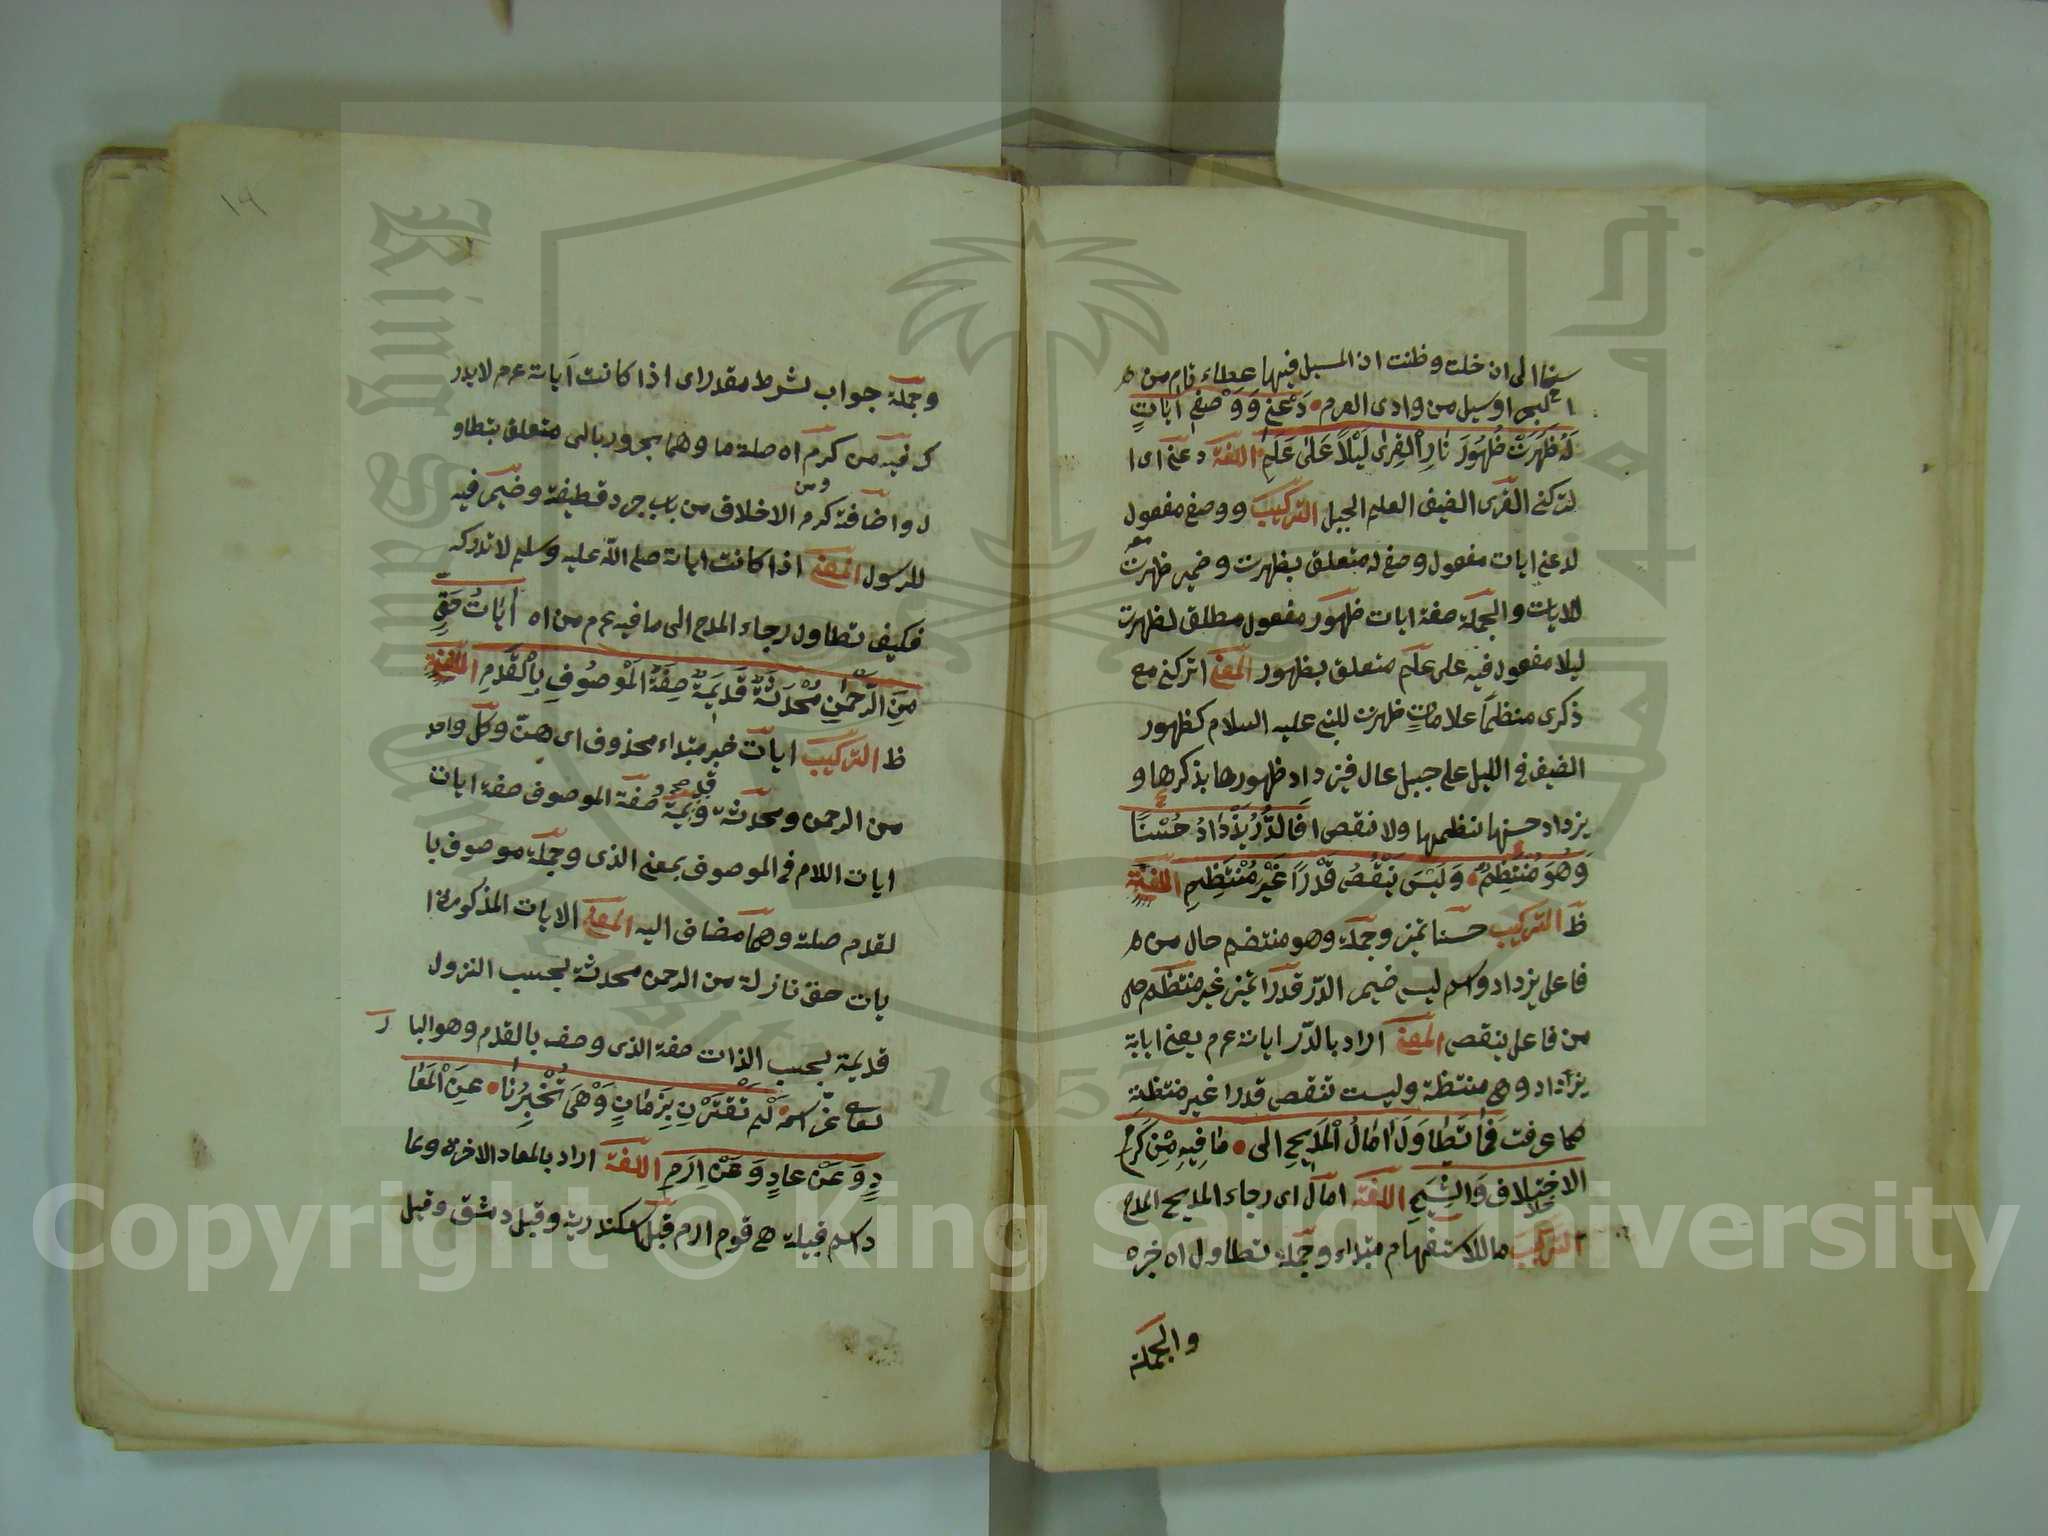 سقيا الى ان خلت وظنت ان المسيل فيها عطاء قائم من
البحر او سيل من وادى العرم دَعْنِي وَوَصْفِي اٰيَاتٍ
لَهُ ظَهَرَتْ ظُهُورَ نَارِ الْقِرٰى لَيْلًا عَلٰى عَلَمِ اللغة دعنى اى ا
تركنى القرى الضيف العلم الجبل التركيب ووصفى مفعول
معه
لدعنى ايات مفعول وصفى له متعلق بظهرت وضمير ظهرت
للايات والجملة صفة ايات ظهور مفعول مطلق لظهرت
ليلا مفعول فيه على علم متعلق بظهور المعنى اتركنى مع
ذكرى منتظما علامات ظهرت للنبى عليه السلام كظهور
الضيف فى الليل على جبل عال فيزداد ظهورها بذكرها و
يزداد حسنها بنظمها ولا نقص فَالدُّرُّ يَزْدَادُ حُسْنًا
وَهُوَ مُنْتَظِمٌ وَلَيْسَ يَنْقُصُ قَدْرًا غَيْرَ مُنْتَظِمِ اللغة
ظ التركيب حسنا تميز وجملة وهو منتظم حال من
فاعل يزداد واسم ليس ضمير الدر قدرا تميز غير منتظم حال
من فاعل ينقص المعنى اراد بالدر ايات عرم يعنى اياته
يزداد وهى منتظمة وليست تنقص قدرا غير منتظمة
كما عرفت فَمَا تَطَاوَلَ اٰمَالُ الْمَدِيحِ الى مَا فِيهِ مِنْ كَرَمِ
الاخلاق وَالشِّيَمِ اللغة امال اى رجاء المديح المدح
التركيب ما للاستفهام مبتداء وجملة تطاول اه خبره
والجملة
١٩
وجملة جواب لشرط مقدر اى اذا كانت ايات عرم لا يدر
ك فيه من كرم اه صلة ما وهما مجرور بالى متعلق بتطاو
ومن
ل واضافة كرم الاخلاق من باب جرد قطيفة وضمير فيه
للرسول المعنى اذا كانت ايات صلى الله عليه وسلم لا تدرك
فكيف تطاول رجاء المدح الى ما فيه عرم من اه اٰيَاتُ حَقٍّ
مِنَ الرَّحْمٰنِ مُحْدَثَةٌ قَدِيمَةٌ صِفَةُ الْمَوْصُوفِ بِالْقِدَمِ اللغة
ظ التركيب ايات خبر مبتداء محذوف اى هن وكل واحد
من الرحمن ومحدثة وقديمة وصفة الموصوف صفة ايات
ايات اللام فى الموصوف بمعنى الذى وجملة موصوف با
لقدم صلة وهما مضاف اليه المعنى الايات المذكورة ا
يات حق نازلة من الرحمن محدثة بحسب النزول
قديمة بحسب الذات صفة الذى وصف بالقدم وهو البا
ر
تعالى عز اسمه لَمْ تَقْتَرِنْ بِزَمَانٍ وَهْىَ تُخْبِرُنَا عَنِ الْمَعَا
دِ وَعَنْ عَادٍ وَعَنْ اِرَمِ اللغة اراد بالمعاد الاخرة وعا
د اسم قبيلة هى قوم ارم قيل اسكندرية وقيل دمشق وقيل
Copyright © King Saud University
King Saud University
جامعة الملك سعود
1957